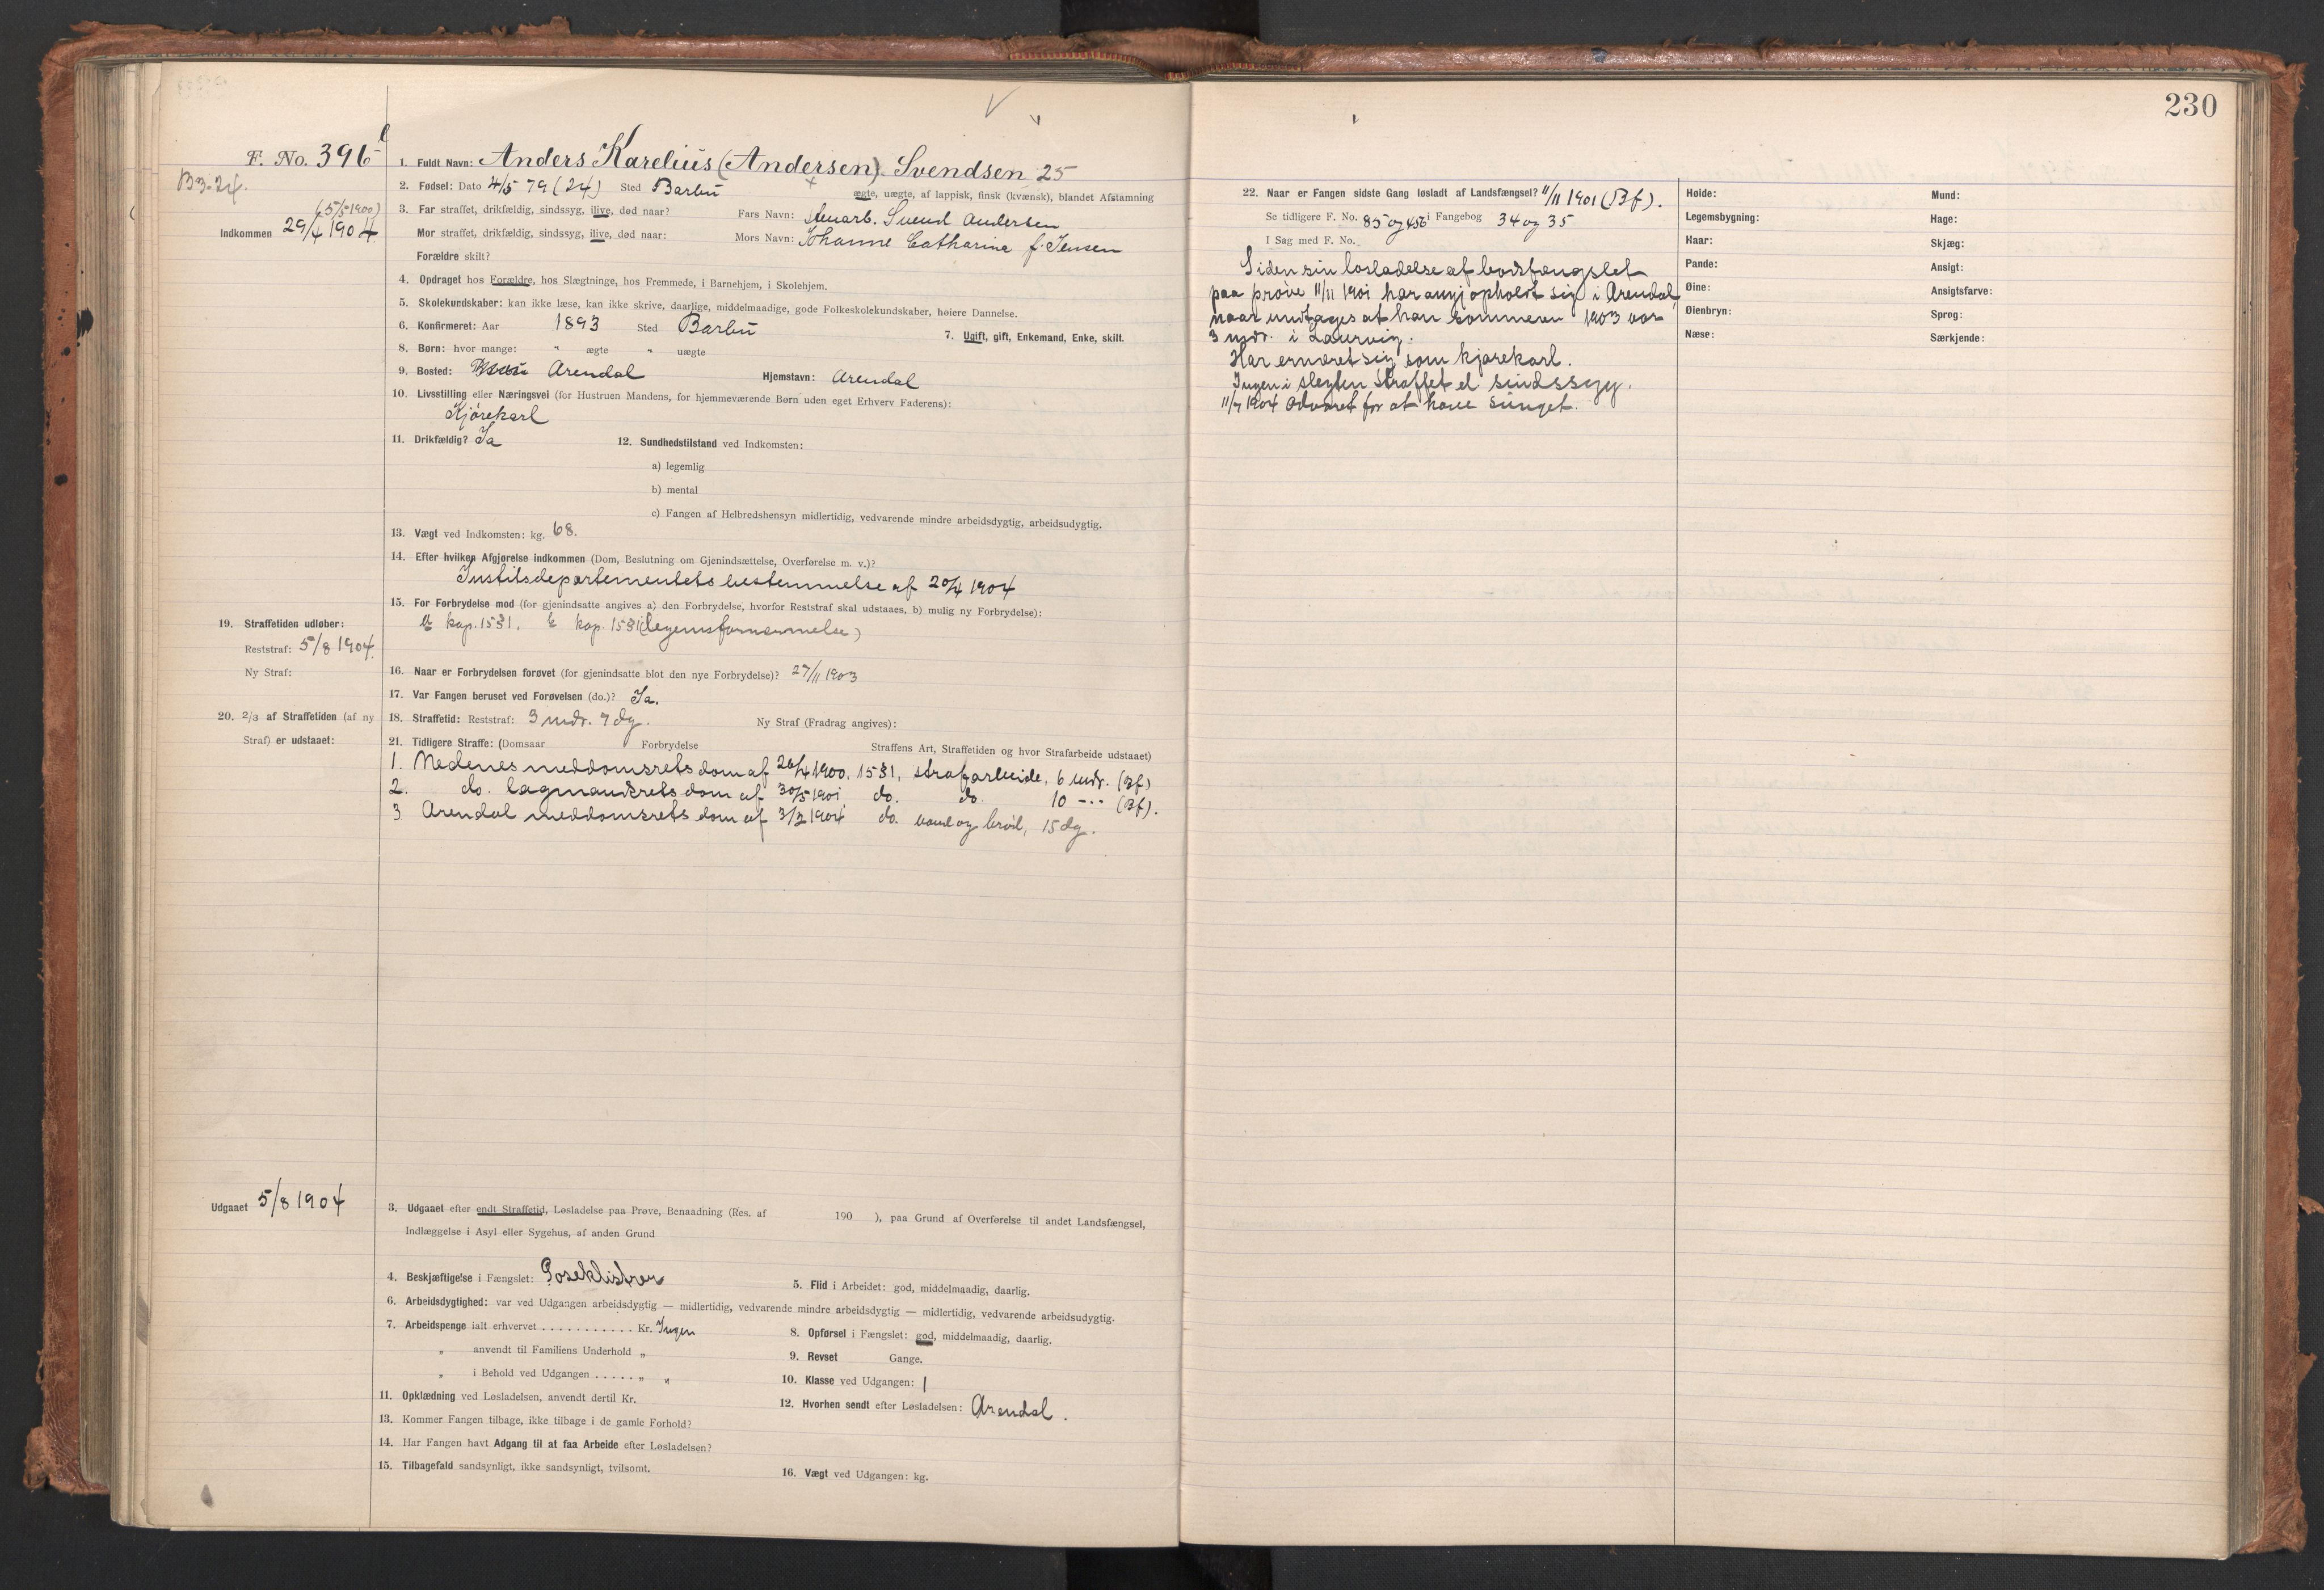 230
F. No. 396
B3-24.
(5/5 1900)
Indkommen 29/4 1904
1. Fuldt Navn: Anders Karelius (Andersen) Svendsen 25
2. Fødsel: Dato 4/5 79 (24) Sted Barbu
ægte, uægte, af lappisk, finsk (kvænsk), blandet Afstamning
3. Far straffet, drikfældig, sindssyg, ilive, død naar? Fars Navn: Svend Andersen
Mor straffet, drikfældig, sindssyg, ilive, død naar: Mors Navn: Johanne Catharina f. Jensen
Forældre skilt?
4. Opdraget hos Forældre, hos Slægtninge, hos Fremmede, i Barnehjem, i Skolehjem.
5. Skolekundskaber: kan ikke læse, kan ikke skrive, daarlige, middelmaadige, gode Folkeskolekundskaber, høiere Dannelse.
6. Konfirmeret: Aar 1893 Sted Barbu
7. Ugift, gift, Enkemand, Enke, skilt.
8. Børn: hvor mange: " ægte " uægte
9. Bosted: Arendal Hjemstavn: Arendal
10. Livsstilling eller Næringsvei (for Hustruen Mandens, for hjemmeværende Børn uden eget Erhverv Faderens):
Kjørekarl
11. Drikfældig? Ja 12. Sundhedstilstand ved Indkomsten:
a) legemlig
b) mental
c) Fangen af Helbredshensyn midlertidig, vedvarende mindre arbeidsdygtig, arbeidsudygtig.
13. Vægt ved Indkomsten: kg. 68.
14. Efter hvilken Afgjørelse indkommen (Dom, Beslutning om Gjenindsættelse, Overførelse m. v.)?
Justitsdepartementets bestemmelse af 20/4 1904
15. For Forbrydelse mod (for gjenindsatte angives a) den Forbrydelse, hvorfor Reststraf skal udstaaes, b) mulig ny Forbrydelse):
a kap. 15 § 1. b kap. 15 § 1 (legemsfornærmelse)
19. Straffetiden udløber:
Reststraf: 5/8 1904.
Ny Straf:
16. Naar er Forbrydelsen forøvet (for gjenindsatte blot den nye Forbrydelse)? 27/11 1903
17. Var Fangen beruset ved Forøvelsen (do.)? Ja.
20. 2/3 af Straffetiden (af ny
Straf) er udstaaet:
18. Straffetid: Reststraf: 3 mdr. 7 dg. Ny Straf (Fradrag angives):
21. Tidligere Straffe: (Domsaar Forbrydelse Straffens Art, Straffetiden og hvor Strafarbeide udstaaet)
1. Nedenes meddomsrets dom af 26/4 1900, 15 § 1, strafarbeide, 6 mdr. (Bf)
2. do. lagmandsrets dom af 30/5 1901, do. do. 10 -"- (Bf).
3 Arendal meddomsrets dom af 3/2 1904 do. vand og brød, 15 dg.
Udgaaet 5/8 1904
3. Udgaaet efter endt Straffetid, Løsladelse paa Prøve, Benaadning (Res. af 190 ), paa Grund af Overførelse til andet Landsfængsel,
Indlæggelse i Asyl eller Sygehus, af anden Grund
4. Beskjæftigelse i Fængslet: Poseklistrer 5. Flid i Arbeidet: god, middelmaadig, daarlig.
6. Arbeidsdygtighed: var ved Udgangen arbeidsdygtig — midlertidig, vedvarende mindre arbeidsdygtig — midlertidig, vedvarende arbeidsudygtig.
7. Arbeidspenge ialt erhvervet . . . . . . . . . . . Kr. Ingen 8. Opførsel i Fængslet: god, middelmaadig, daarlig.
" anvendt til Familiens Underhold " 9. Revset Gange.
" i Behold ved Udgangen . . . . . " " 10. Klasse ved Udgangen: 1
11. Opklædning ved Løsladelsen, anvendt dertil Kr. 12. Hvorhen sendt efter Løsladelsen: Arendal.
13. Kommer Fangen tilbage, ikke tilbage i de gamle Forhold?
14. Har Fangen havt Adgang til at faa Arbeide efter Løsladelsen?
15. Tilbagefald sandsynligt, ikke sandsynligt, tvilsomt. 16. Vægt ved Udgangen: kg.
22. Naar er Fangen sidste Gang løsladt af Landsfængsel? 11/11 1901 (Bf).
Se tidligere F. No. 85 og 456 i Fangebog 34 og 35
I Sag med F. No.
Siden sin løsladelse af bodsfængslet
paa prøve 11/11 1901 har angj opholdt sig i Arendal,
naar undtages at han sommeren 1903 var
3 mdr. i Laurvig.
Har ernæret sig som kjørekarl.
Ingen i slegten straffet el sindssyg.
11/7 1904 Advaret for at have sunget.
Høide:
Legemsbygning:
Haar:
Pande:
Øine:
Øienbryn:
Næse:
Mund:
Hage:
Skjæg:
Ansigt:
Ansigtsfarve:
Sprog:
Særkjende: